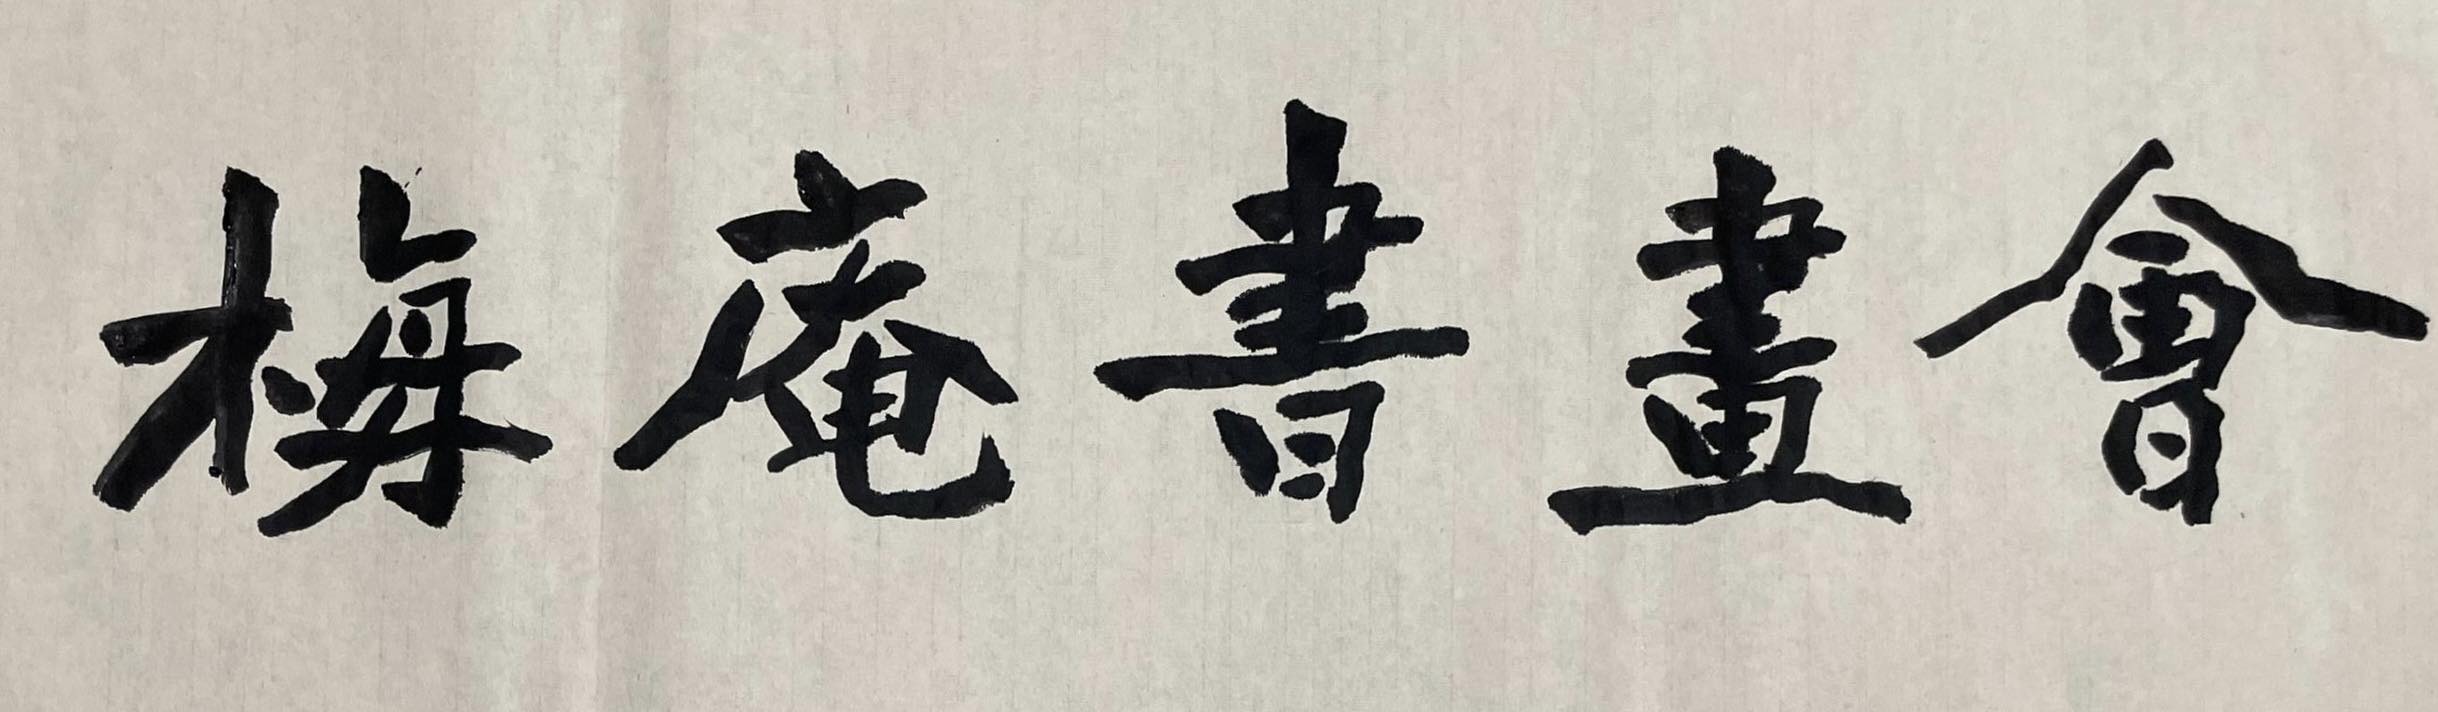 梅庵書畫會